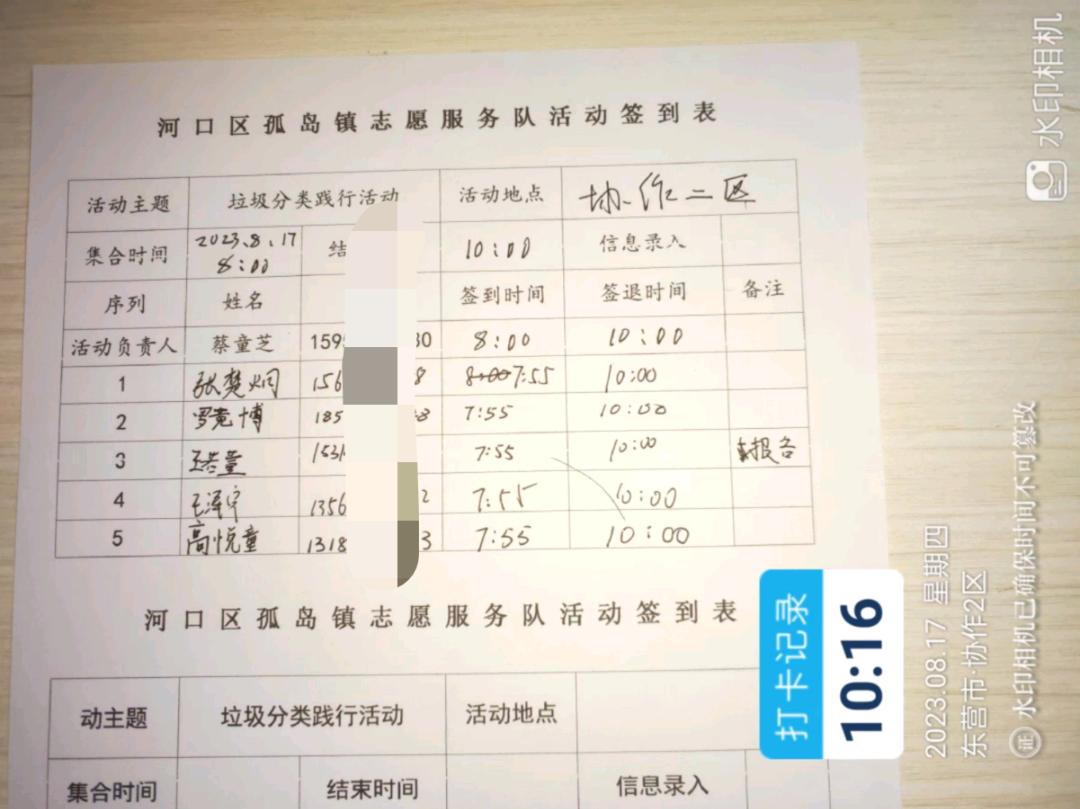 河口区孤岛镇志愿服务队活动签到表
活动主题 垃圾分类践行活动 活动地点 协作二区
集合时间 2023.8.17 8:00 结 10:00 信息录入
序列 姓名 签到时间 签退时间 备注
活动负责人 蔡童芝 159 30 8:00 10:00
1 张楚炯 156 8 8:00 7:55 10:00
2 罗竟博 185 7:55 10:00
3 1531 7:55 10:00 报告
4 王泽宇 1356 2 7:55 10:00
5 高悦童 1318 3 7:55 10:00
河口区孤岛镇志愿服务队活动签到表
动主题 垃圾分类践行活动 活动地点
集合时间 结束时间 信息录入
打卡记录
10:16
2023.08.17 星期四
东营市·协作2区
证 水印相机已确保时间不可篡改
水印相机